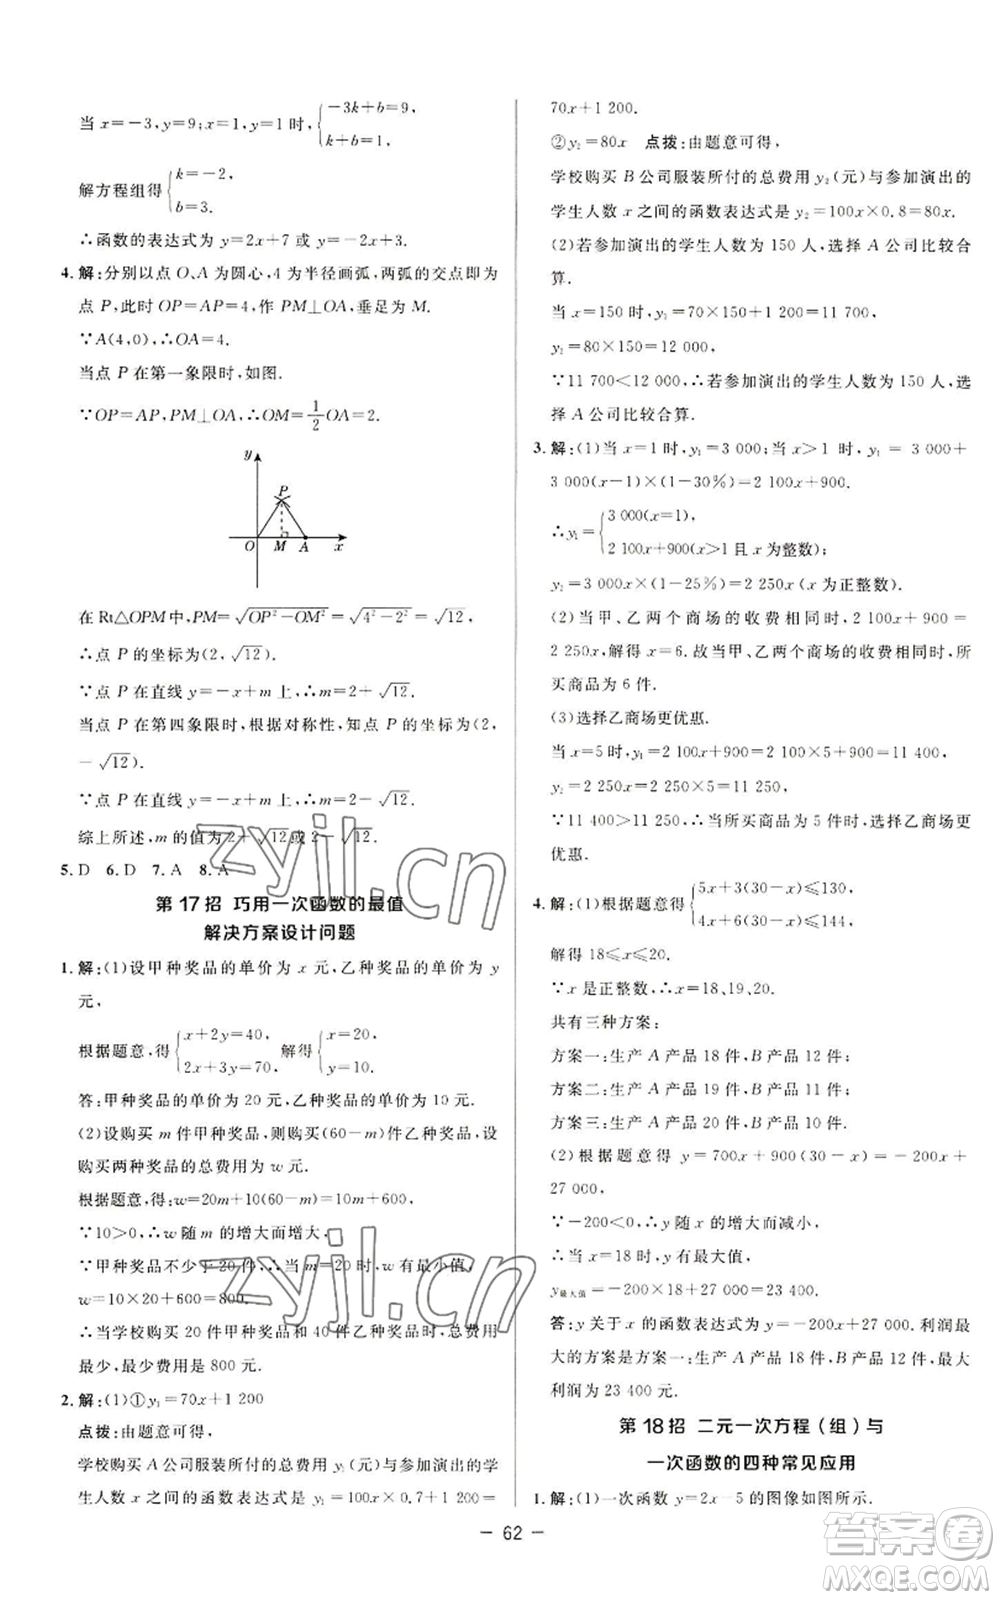 当 x=-3,y=9;x=1,y=1 时,{-3k+b=9,
k+b=1,
解方程组得{k=-2,
b=3.
∴函数的表达式为 y=2x+7 或 y=-2x+3.
4.解:分别以点 O、A 为圆心,4 为半径画弧,两弧的交点即为
点 P,此时 OP=AP=4,作 PM⊥OA,垂足为 M.
∵A(4,0),∴OA=4.
当点 P 在第一象限时,如图.
∵OP=AP,PM⊥OA,∴OM=1/2 OA=2.
y
P
O M A x
在 Rt△OPM中,PM=√(OP²-OM²)=√(4²-2²)=√12,
∴点 P 的坐标为(2,√12).
∵点 P 在直线 y=-x+m 上,∴m=2+√12.
当点 P 在第四象限时,根据对称性,知点 P 的坐标为(2,
-√12).
∵点 P 在直线 y=-x+m 上,∴m=2-√12.
综上所述,m 的值为 2+√12或2-√12.
5.D 6.D 7.A 8.A
第 17 招 巧用一次函数的最值
解决方案设计问题
1.解:(1)设甲种奖品的单价为 x 元,乙种奖品的单价为 y
元,
根据题意,得{x+2y=40, 解得{x=20,
2x+3y=70, y=10.
答:甲种奖品的单价为 20 元,乙种奖品的单价为 10 元.
(2)设购买 m 件甲种奖品,则购买(60-m)件乙种奖品,设
购买两种奖品的总费用为 w 元.
根据题意,得:w=20m+10(60-m)=10m+600,
∵10>0,∴w 随 m 的增大而增大,
∵甲种奖品不少于 20 件,∴当 m=20 时,w 有最小值,
w=10×20+600=800.
∴当学校购买 20 件甲种奖品和 40 件乙种奖品时,总费用
最少,最少费用是 800 元.
2.解:(1)①y₁=70x+1 200
点拨:由题意可得,
学校购买 A 公司服装所付的总费用 y₁(元)与参加演出的学
生人数 x 之间的函数表达式是 y₁=100x×0.7+1 200=
70x+1 200.
②y₂=80x 点拨:由题意可得,
学校购买 B 公司服装所付的总费用 y₂(元)与参加演出的
学生人数 x 之间的函数表达式是 y₂=100x×0.8=80x.
(2)若参加演出的学生人数为 150 人,选择 A 公司比较合
算.
当 x=150 时,y₁=70×150+1 200=11 700,
y₂=80×150=12 000,
∵11 700<12 000,∴若参加演出的学生人数为 150 人,选
择 A 公司比较合算.
3.解:(1)当 x=1 时,y₁=3 000;当 x>1 时,y₁ = 3 000+
3 000(x-1)×(1-30%)=2 100x+900.
∴y₁={3 000(x=1),
2 100x+900(x>1 且 x 为整数);
y₂=3 000x(1-25%)=2 250x(x 为正整数).
(2)当甲、乙两个商场的收费相同时,2 100x+900=
2 250x,解得 x=6.故当甲、乙两个商场的收费相同时,所
买商品为 6 件.
(3)选择乙商场更优惠.
当 x=5 时,y₁=2 100x+900=2 100×5+900=11 400,
y₂=2 250x=2 250×5=11 250,
∵11 400>11 250,∴当所买商品为 5 件时,选择乙商场更
优惠.
4.解:(1)根据题意得{5x+3(30-x)≤130,
4x+6(30-x)≤144,
解得 18≤x≤20.
∵x 是正整数,∴x=18、19、20.
共有三种方案:
方案一:生产 A 产品 18 件,B 产品 12 件;
方案二:生产 A 产品 19 件,B 产品 11 件;
方案三:生产 A 产品 20 件,B 产品 10 件.
(2)根据题意得 y=700x+900(30-x)=-200x+
27 000,
∵-200<0,∴y 随 x 的增大而减小,
∴当 x=18 时,y 有最大值,
y最大值=-200×18+27 000=23 400.
答:y 关于 x 的函数表达式为 y=-200x+27 000.利润最
大的方案是方案一:生产 A 产品 18 件,B 产品 12 件,最大
利润为 23 400 元.
第 18 招 二元一次方程(组)与
一次函数的四种常见应用
1.解:(1)一次函数 y=2x-5 的图像如图所示.
- 62 -
zyjl.cn
zyjl.cn
答案圈
MXQE.COM